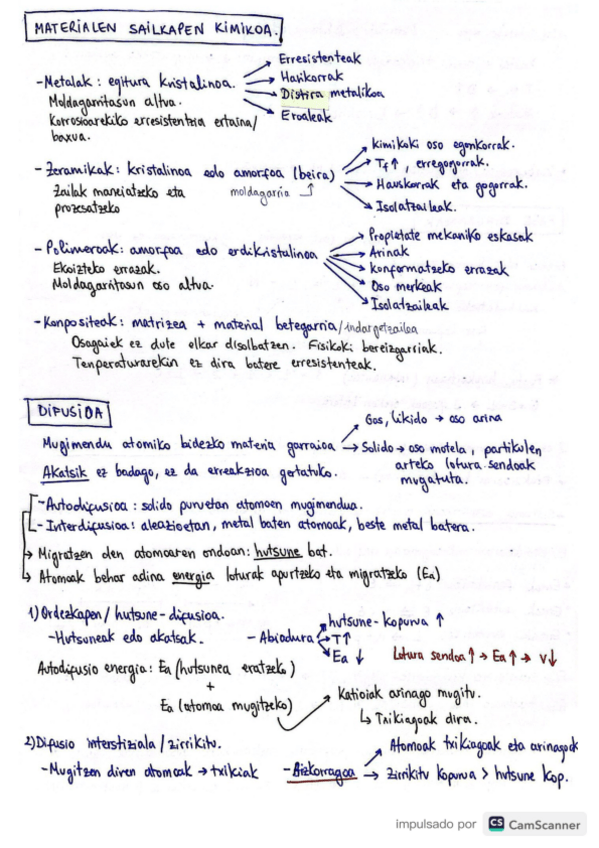 MATERIALEN SAILKAPEN KIMIKOA.
-Metalak: egitura kristalinoa.
Moldagarritasun altua.
Korrosioarekiko erresistentzia ertaina/
baxua.
Erresistenteak
Harikorrak
Distira metalikoa
Eroaleak
-Zeramikak: kristalinoa edo amorfoa (beira)
Zailak maneiatzeko eta
prozesatzeko
moldagarria
kimikoki oso egonkorrak.
Tf↑, erregogorrak.
Hauskorrak eta gogorrak.
Isolatzaileak.
-Polimeroak: amorfoa edo erdikristalinoa
Ekoizteko errazak.
Moldagarritasun oso altua.
Propietate mekaniko eskasak
Arinak
konformatzeko errazak
Oso merkeak
Isolatzaileak
-Konpositeak: matrizea + material betegarria/indargetzailea
Osagaiek ez dute elkar disolbatzen. Fisikoki bereizgarriak.
Tenperaturarekin ez dira batere erresistenteak.
DIFUSIOA
Mugimendu atomiko bidezko materia garraioa
Gas, likido → oso arina
Solido → oso motela, partikulen
arteko lotura sendoak
mugatuta.
Akatsik ez badago, ez da erreakzioa gertatuko.
-Autodifusioa: solido puruetan atomoen mugimendua.
-Interdifusioa: aleazioetan, metal baten atomoak, beste metal batera.
→ Migratzen den atomoaren ondoan: hutsune bat.
→ Atomoak behar adina energia loturak apurtzeko eta migratzeko (Ea)
1) Ordezkapen/hutsune-difusioa.
-Hutsuneak edo akatsak.
-Abiadura
hutsune-kopurua ↑
T↑
Ea ↓
Lotura sendoa↑ → Ea↑ → v↓
Autodifusio energia: Ea (hutsunea eratzeko)
+
Ea (atomoa mugitzeko)
Katioiak arinago mugitu.
↳ Txikiagoak dira.
2) Difusio interstiziala/zirrikitu.
-Mugitzen diren atomoak → txikiak
-Bizkorragoa
Atomoak txikiagoak eta arinagoak
→ Zirrikitu kopurua > hutsune kop.
impulsado por CS CamScanner